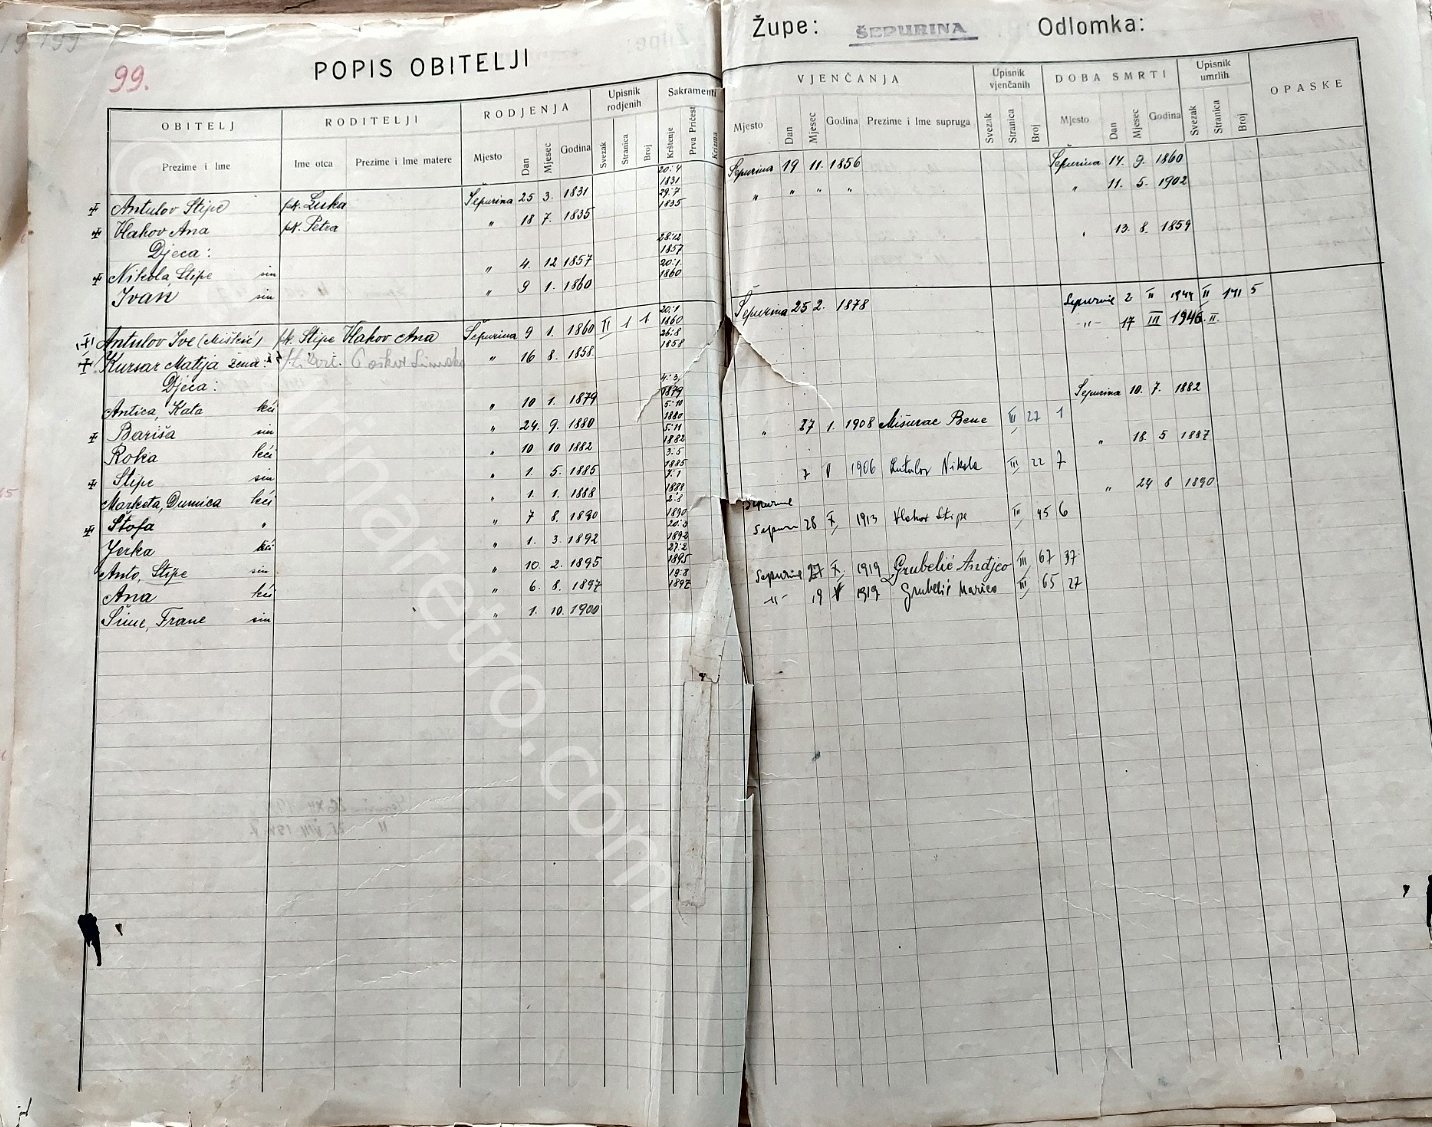 99.
POPIS OBITELJI
Župe: ŠEPURINA Odlomka:
OBITELJ RODITELJI RODJENJA Upisnik rodjenih Sakramenti VJENČANJA Upisnik vjenčanih DOBA SMRTI Upisnik umrlih OPASKE
Prezime i Ime Ime otca Prezime i Ime matere Mjesto Dan Mjesec Godina Svezak Stranica Broj Krštenje Prva Pričest Krizma Mjesto Dan Mjesec Godina Prezime i Ime supruga Svezak Stranica Broj Mjesto Dan Mjesec Godina Svezak Stranica Broj
Antulov Stipe pk. Luka Šepurina 25 3. 1831 20.4 1831 Šepurina 19 11. 1856 Šepurina 14. 9. 1860
Vlahov Ana pk. Petra " 18 7. 1835 29.7 1835 " " " " " 11. 5. 1902
Djeca:
Nikola, Stipe sin " 4. 12 1857 28.12 1857 " 13. 8. 1859
Ivan sin " 9 1. 1860 20.1. 1860
Antulov Ive pk. Stipe Vlahov Ana Šepurina 9 1. 1860 II 1 1 20.1 1860 Šepurina 25 2. 1878 Šepurine 2 II 1944 II 141 5
Kursar Matija žena " 16 8. 1858 26.8 1858 -"- 17 III 1946 II
Djeca:
Antica, Kata kći " 10 1. 1879 4.3. 1879 Šepurina 10. 7. 1882
Bariša sin " 24. 9. 1880 5.10 1880 " 27 1. 1908 Mišurac Bene III 27 1
Roka kći " 10 10 1882 5.11 1882 " 18. 5 1887
Stipe sin " 1 5. 1885 3.5 1885 7 1906 Antulov Nikola III 22 7
Marketa, Dumica kći " 1 1. 1888 7.1 1888 " 24 8 1890
Štofa " " 7 8. 1890 2.8 1890 Šepurine
Jerka kći " 1. 3. 1892 20.3 1892 Šepurin 28 X 1913 Vlahov Stipe III 45 6
Anto, Stipe sin " 10 2. 1895 27.2 1895
Ana kći " 6. 8. 1897 19.8 1897 Šepurine 27 X 1919 Grubelić Andjeo III 67 37
Šime, Frane sin " 1. 10. 1900 -"- 19 V 1919 Grubelić Marico III 65 27
inaretro.com